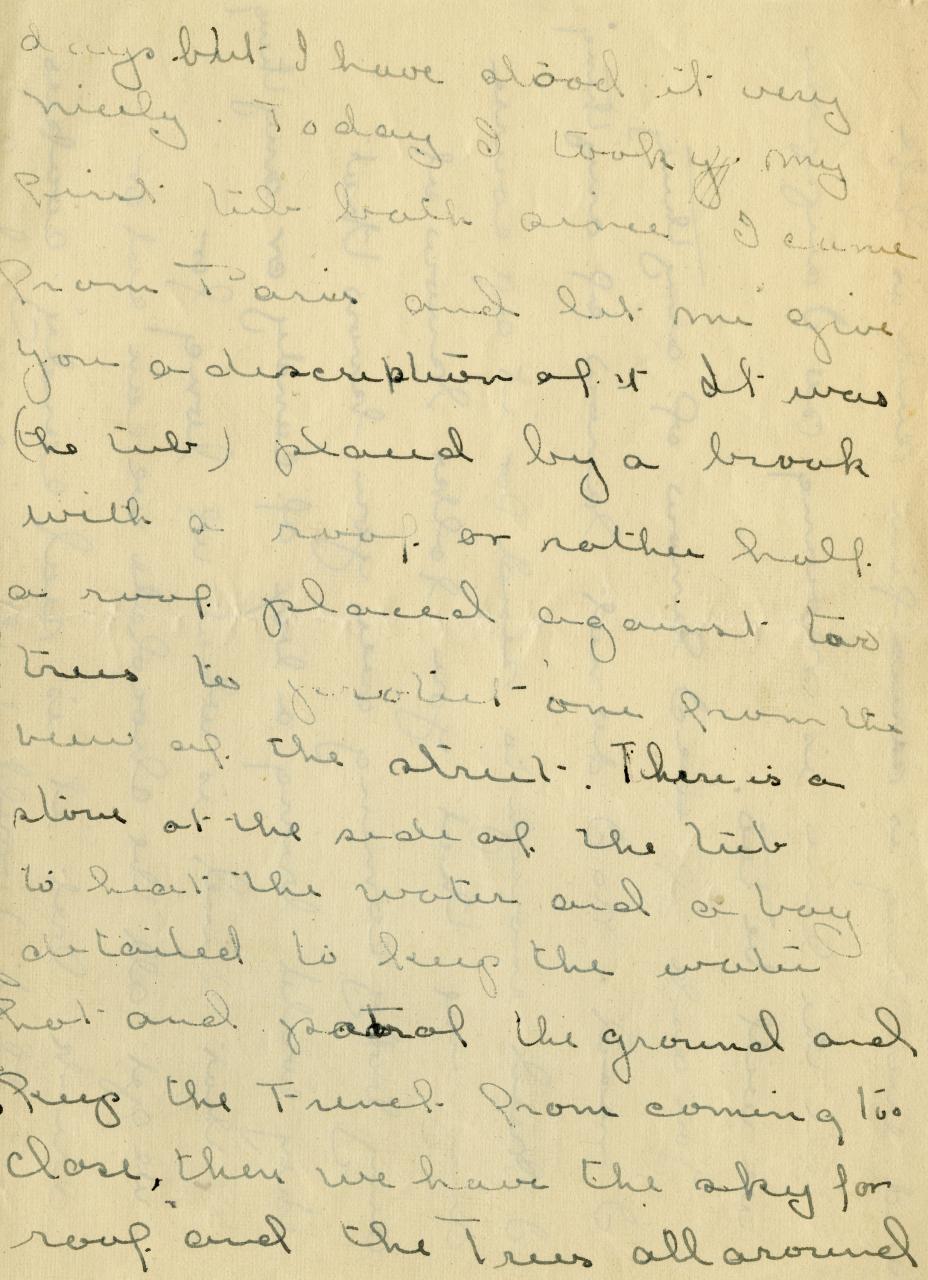 days but I have stood it very
nicely. Today I took my
first tub bath since I came
from Paris and let me give
you a description of it It was
(the tub) placed by a brook
with a roof or rather half
a roof placed against two
trees to protect one from the
view of the street. There is a
stove at the side of the tub
to heat the water and a boy
detailed to keep the water
hot and patrol the ground and
keep the French from coming too
close, then we have the sky for
roof and the Trees all around